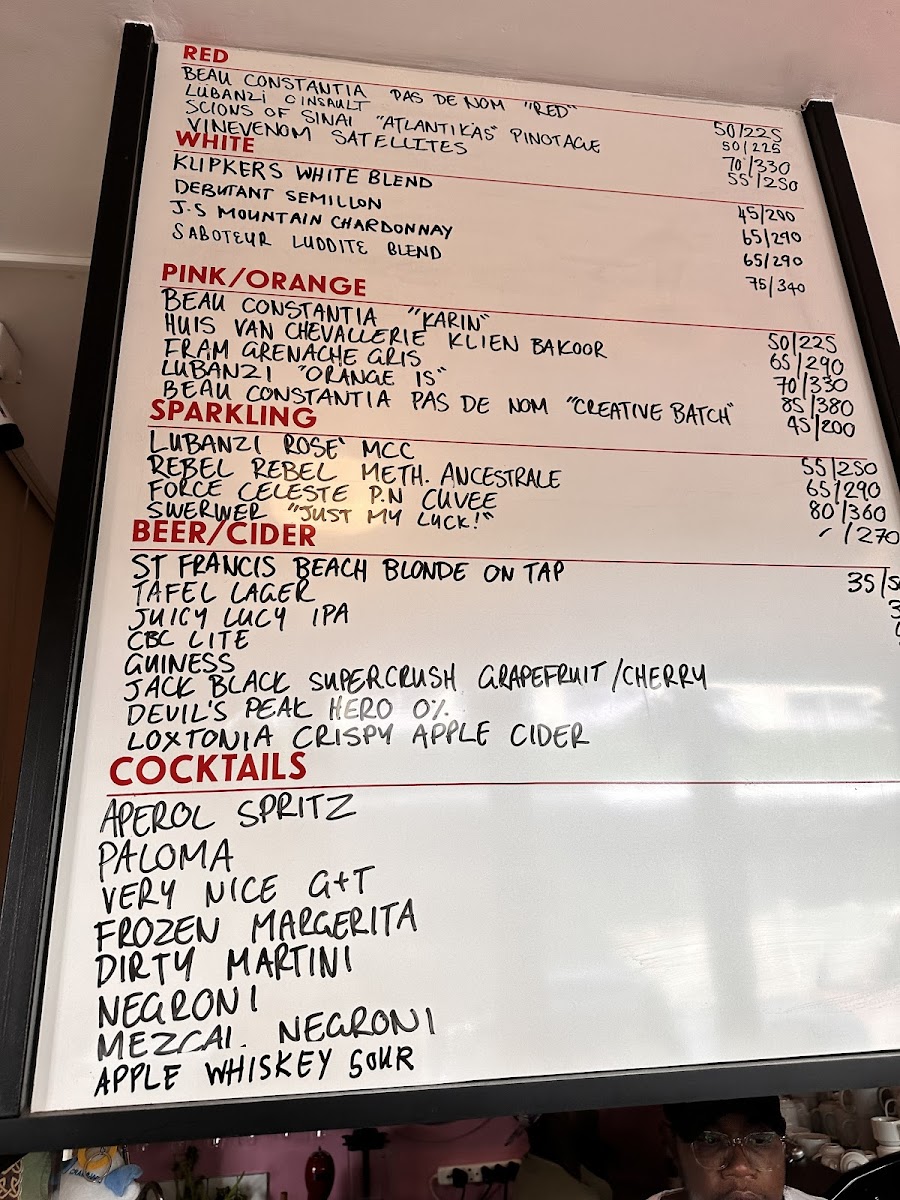 RED
BEAU CONSTANTIA PAS DE NOM "RED" 50/225
LUBANZI CINSAULT 50/225
SCIONS OF SINAI "ATLANTIKAS" PINOTAGE 70/330
VINEVENOM SATELLITES 55/250
WHITE
KLIPKERS WHITE BLEND 45/200
DEBUTANT SEMILLON 65/290
J.S MOUNTAIN CHARDONNAY 65/290
SABOTEUR LUDDITE BLEND 75/340
PINK/ORANGE
BEAU CONSTANTIA "KARIN" 50/225
HUIS VAN CHEVALLERIE KLIEN BAKOOR 65/290
FRAM GRENACHE GRIS 70/330
LUBANZI "ORANGE IS" 85/380
BEAU CONSTANTIA PAS DE NOM "CREATIVE BATCH" 45/200
SPARKLING
LUBANZI ROSE MCC 55/250
REBEL REBEL METH. ANCESTRALE 65/290
FORCE CELESTE P.N CUVEE 80/360
SWERWER "JUST MY LUCK!" /270
BEER/CIDER
ST FRANCIS BEACH BLONDE ON TAP 35/
TAFEL LAGER
JUICY LUCY IPA
CBC LITE
GUINESS
JACK BLACK SUPERCRUSH GRAPEFRUIT/CHERRY
DEVIL'S PEAK HERO 0%
LOXTONIA CRISPY APPLE CIDER
COCKTAILS
APEROL SPRITZ
PALOMA
VERY NICE G+T
FROZEN MARGERITA
DIRTY MARTINI
NEGRONI
MEZCAL NEGRONI
APPLE WHISKEY SOUR